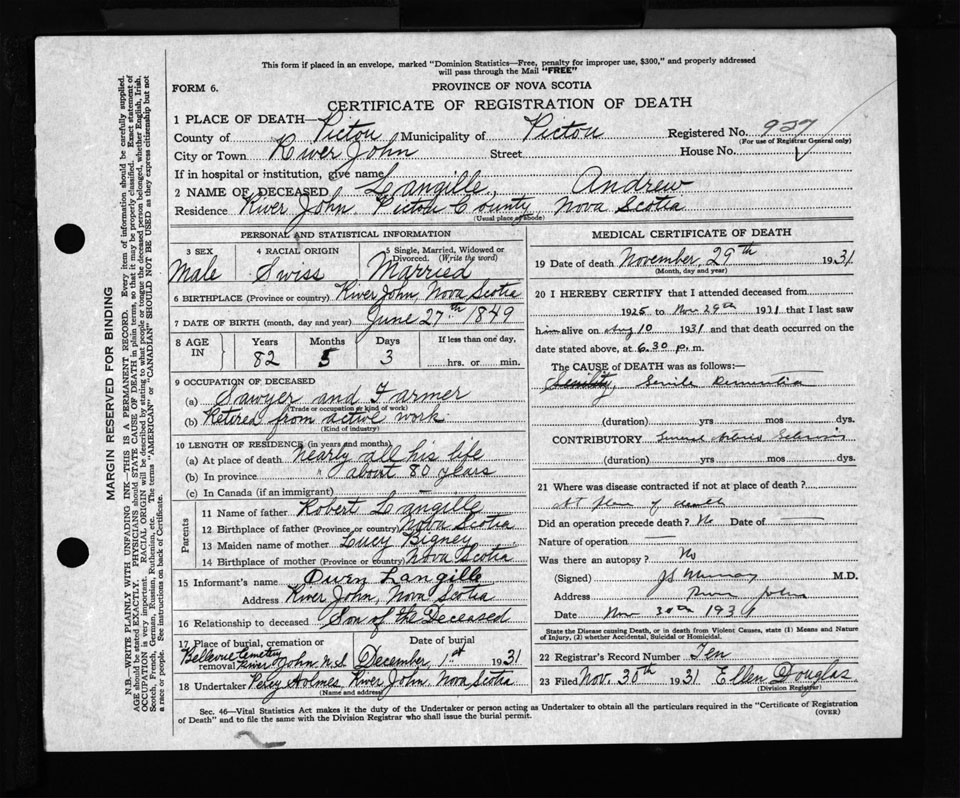 This form if placed in an envelope, marked "Dominion Statistics—Free, penalty for improper use, $300," and properly addressed
will pass through the Mail "FREE"
FORM 6.
PROVINCE OF NOVA SCOTIA
CERTIFICATE OF REGISTRATION OF DEATH
1 PLACE OF DEATH—
County of Pictou Municipality of Pictou Registered No. 927
(For use of Registrar General only)
City or Town River John Street House No.
If in hospital or institution, give name
2 NAME OF DECEASED Langille, Andrew
Residence River John Pictou County, Nova Scotia
(Usual place of abode)
PERSONAL AND STATISTICAL INFORMATION
3 SEX 4 RACIAL ORIGIN 5 Single, Married, Widowed or Divorced. (Write the word)
Male Swiss Married
6 BIRTHPLACE (Province or country) River John, Nova Scotia
7 DATE OF BIRTH (month, day and year) June 27th 1849
8 AGE IN Years Months Days If less than one day,
82 5 3 hrs. or min.
9 OCCUPATION OF DECEASED
(a) Sawyer and Farmer
(Trade or occupation or kind of work)
(b) Retired from active work
(Kind of industry)
10 LENGTH OF RESIDENCE (in years and months)
(a) At place of death nearly all his life
(b) In province " about 80 years
(c) In Canada (if an immigrant) —
Parents
11 Name of father Robert Langille
12 Birthplace of father (Province or country) Nova Scotia
13 Maiden name of mother Lucy Bigney
14 Birthplace of mother (Province or country) Nova Scotia
15 Informant's name Owen Langille
Address River John, Nova Scotia
16 Relationship to deceased Son of the Deceased
17 Place of burial, cremation or removal Date of burial
Bellevue Cemetery River John N.S. December, 1st 1931
18 Undertaker Percy Holmes River John Nova Scotia
(Name and address)
MEDICAL CERTIFICATE OF DEATH
19 Date of death November, 29th 1931
(Month, day and year)
20 I HEREBY CERTIFY that I attended deceased from
1925 to Nov 29th 1931 that I last saw
him alive on Aug 10 1931 and that death occurred on
date stated above, at 6.30 p. m.
The CAUSE of DEATH was as follows:—
Senility, Senile Dementia
(duration) yrs mos dys.
CONTRIBUTORY
(duration) yrs mos dys.
21 Where was disease contracted if not at place of death?
At place of death
Did an operation precede death? No Date of —
Nature of operation —
Was there an autopsy? No
(Signed) J S Murray M.D.
Address River John
Date Nov 30th 1931
State the Disease causing Death, or in death from Violent Causes, state (1) Means and Nature
of Injury, (2) whether Accidental, Suicidal or Homicidal.
22 Registrar's Record Number Ten
23 Filed Nov. 30th 1931 Ellen Douglas
(Division Registrar)
Sec. 46—Vital Statistics Act makes it the duty of the Undertaker or person acting as Undertaker to obtain all the particulars required in the "Certificate of Registration
of Death" and to file the same with the Division Registrar who shall issue the burial permit.
(OVER)
MARGIN RESERVED FOR BINDING
N.B.—WRITE PLAINLY WITH UNFADING INK—THIS IS A PERMANENT RECORD. Every item of information should be carefully supplied.
AGE should be stated EXACTLY. PHYSICIANS should STATE CAUSE OF DEATH in plain terms, so that it may be properly classified. Exact statement of
OCCUPATION is very important. RACIAL ORIGIN will be described by stating to what people or tongue the deceased person belonged, whether English, Irish,
Scotch, French, German, Russian, Ruthenian, etc. The terms "AMERICAN" or "CANADIAN" SHOULD NOT BE USED as they express citizenship but not
a race or people. See instructions on back of Certificate.